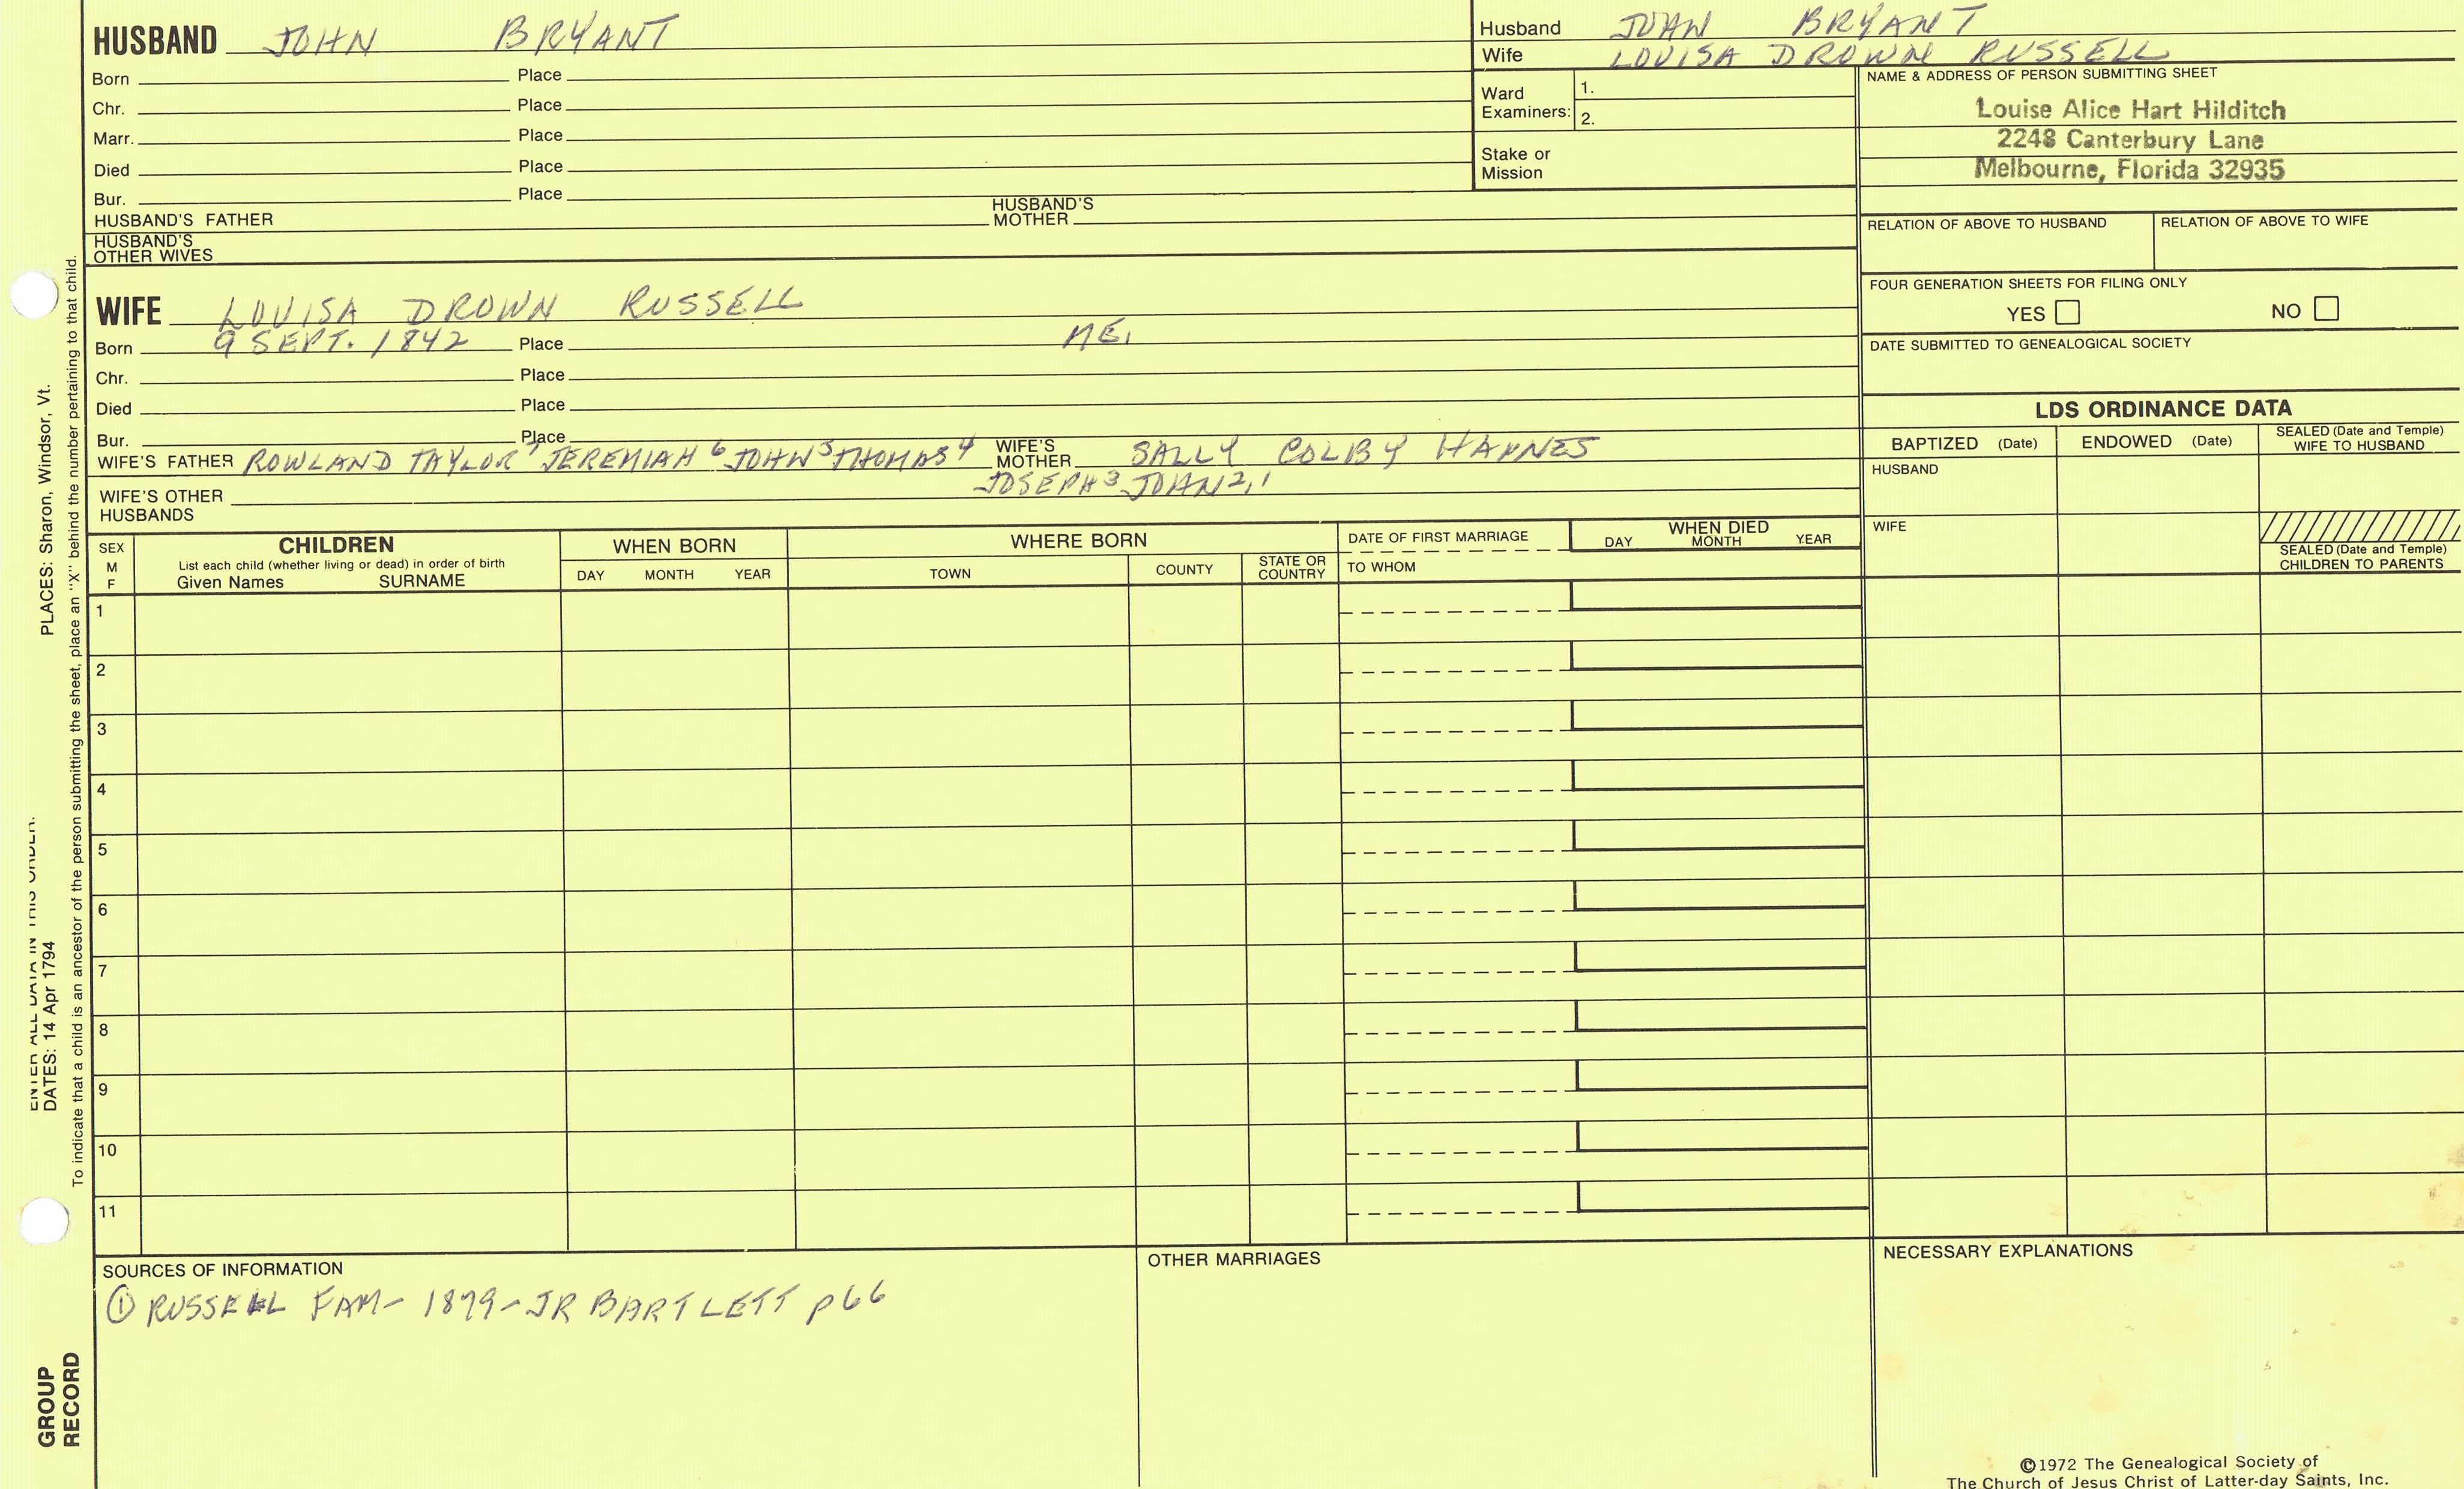 HUSBAND JOHN BRYANT
Born Place
Chr. Place
Marr. Place
Died Place
Bur. Place
HUSBAND'S FATHER HUSBAND'S MOTHER
HUSBAND'S OTHER WIVES
WIFE LOUISA DROWN RUSSELL
Born 9 SEPT. 1842 Place ME.
Chr. Place
Died Place
Bur. Place
WIFE'S FATHER ROWLAND TAYLOR7 JEREMIAH6 JOHN5 THOMAS4 WIFE'S MOTHER SALLY COLBY HAYNES
JOSEPH3 JOHN2,1
WIFE'S OTHER HUSBANDS
Husband JOHN BRYANT
Wife LOUISA DROWN RUSSELL
Ward Examiners: 1.
2.
Stake or Mission
NAME & ADDRESS OF PERSON SUBMITTING SHEET
Louise Alice Hart Hilditch
2248 Canterbury Lane
Melbourne, Florida 32935
RELATION OF ABOVE TO HUSBAND RELATION OF ABOVE TO WIFE
FOUR GENERATION SHEETS FOR FILING ONLY
YES NO
DATE SUBMITTED TO GENEALOGICAL SOCIETY
LDS ORDINANCE DATA
BAPTIZED (Date) ENDOWED (Date) SEALED (Date and Temple) WIFE TO HUSBAND
HUSBAND
WIFE
SEALED (Date and Temple) CHILDREN TO PARENTS
SEX M F
CHILDREN
List each child (whether living or dead) in order of birth
Given Names SURNAME
WHEN BORN
DAY MONTH YEAR
WHERE BORN
TOWN COUNTY STATE OR COUNTRY
DATE OF FIRST MARRIAGE
TO WHOM
WHEN DIED
DAY MONTH YEAR
1
2
3
4
5
6
7
8
9
10
11
SOURCES OF INFORMATION
① RUSSELL FAM- 1879-JR BARTLETT p66
OTHER MARRIAGES
NECESSARY EXPLANATIONS
©1972 The Genealogical Society of
The Church of Jesus Christ of Latter-day Saints, Inc.
ENTER ALL DATA IN THIS ORDER:
DATES: 14 Apr 1794 PLACES: Sharon, Windsor, Vt.
To indicate that a child is an ancestor of the person submitting the sheet, place an "X" behind the number pertaining to that child.
GROUP
RECORD